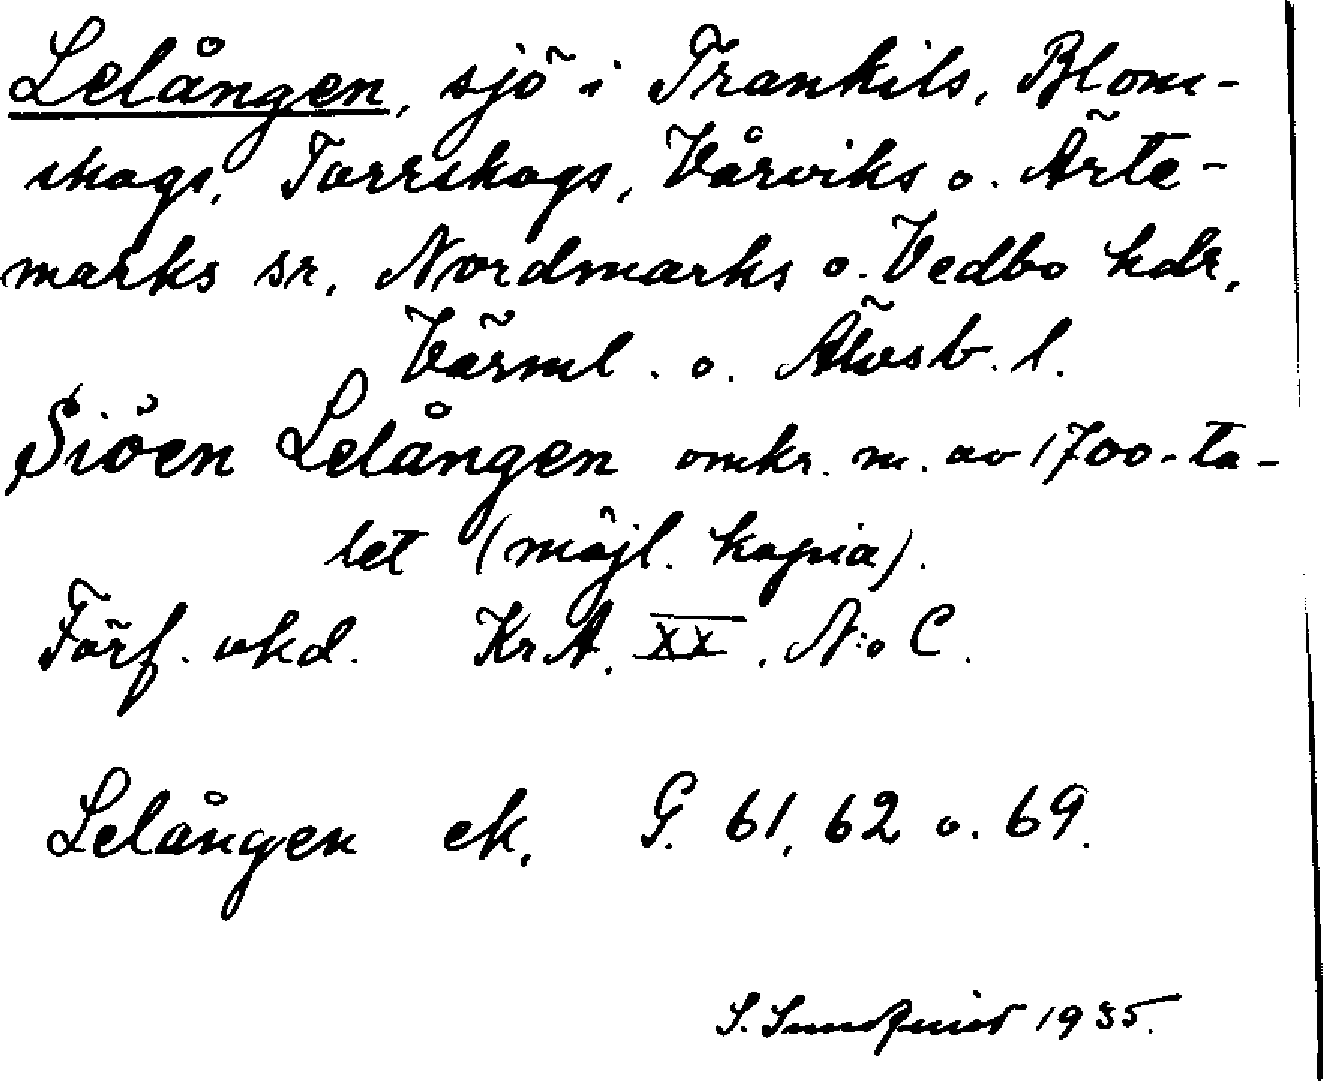 Lelången, sjö i Trankils, Blom-
skogs, Torrskogs, Vårviks o. Ärte-
marks sr, Nordmarks o. Vedbo hdr,
Värml. o. Älvsb. l.
Siöen Lelången omkr. m. av 1700-ta-
let (möjl. kopia).
Förf. okd. KrA. XX, N:o C.
Lelången ek. G. 61, 62 o. 69.
S. Sundquist 1935.